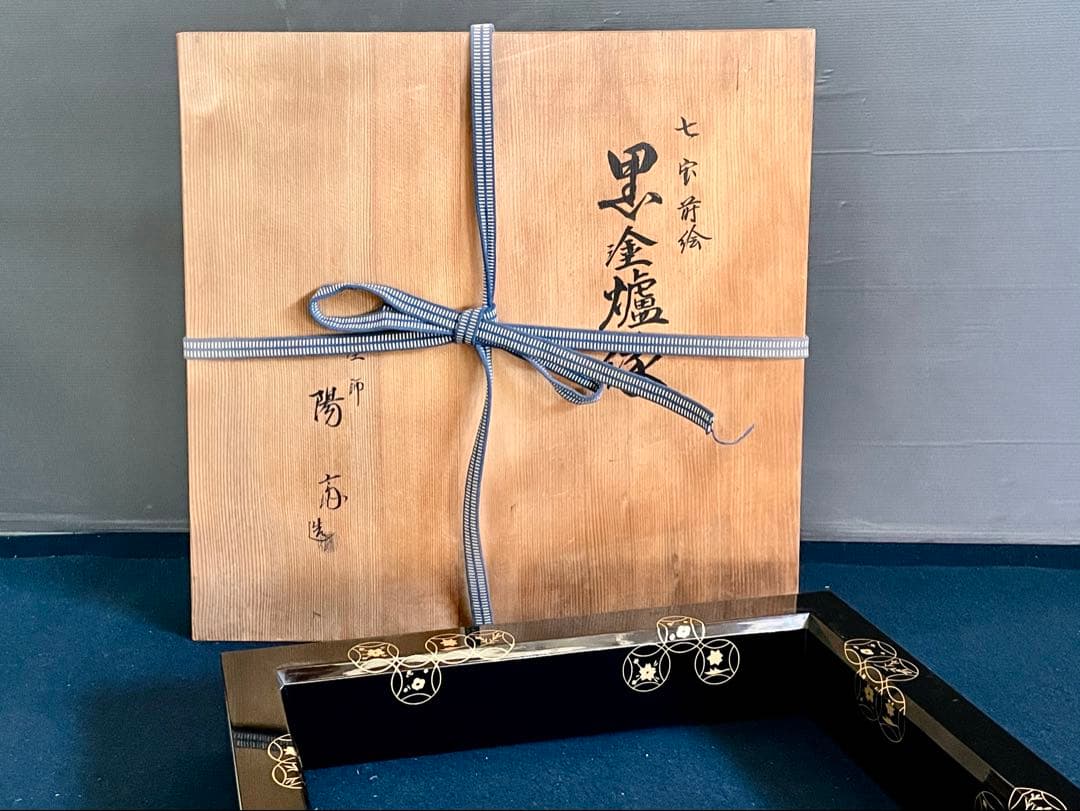 七宝蒔絵
黒塗爐縁
師
陽斎造